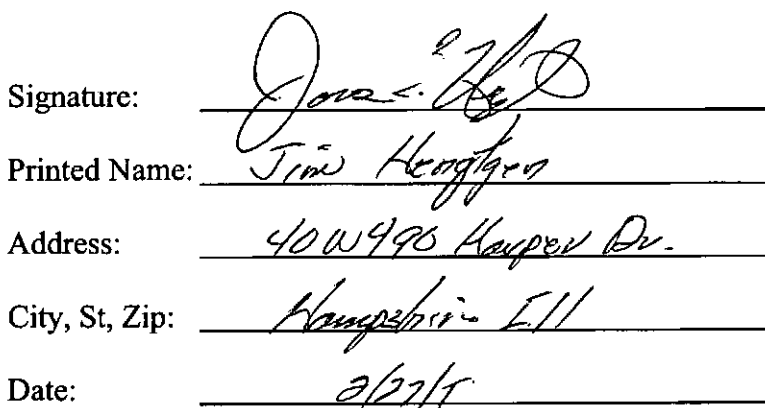 Signature:
Printed Name: Jim Hengtgen
Address: 40W490 Harper Dr.
City, St, Zip: Hampshire Ill
Date: 2/27/